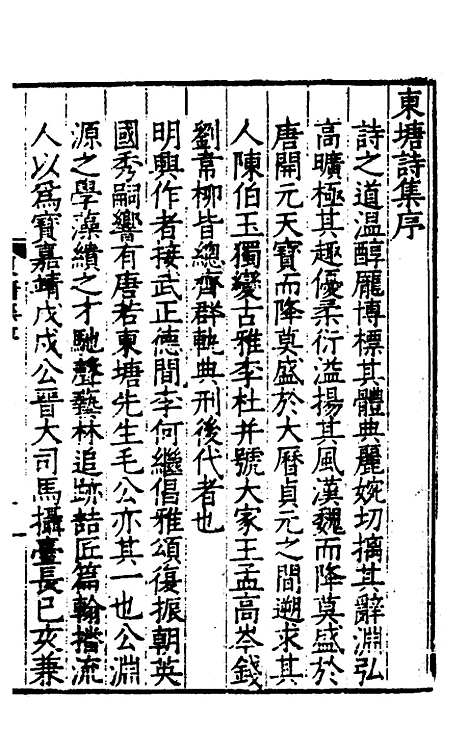 東塘詩集序
詩之道溫醇龎博標其體典麗婉切摛其辭淵弘
高曠極其趣優柔衍溢揚其風漢魏而降莫盛於
唐開元天寶而降莫盛於大曆貞元之間遡求其
人陳伯玉獨變古雅李杜并號大家王孟高岑錢
劉韋柳皆總齊群軌典刑後代者也
明興作者接武正德間李何繼倡雅頌復振朝英
國秀嗣響有唐若東塘先生毛公亦其一也公淵
源之學藻繢之才馳聲藝林追跡詰匠篇翰擅流
人以為寶嘉靖戊戌公晉大司馬攝臺長己亥兼